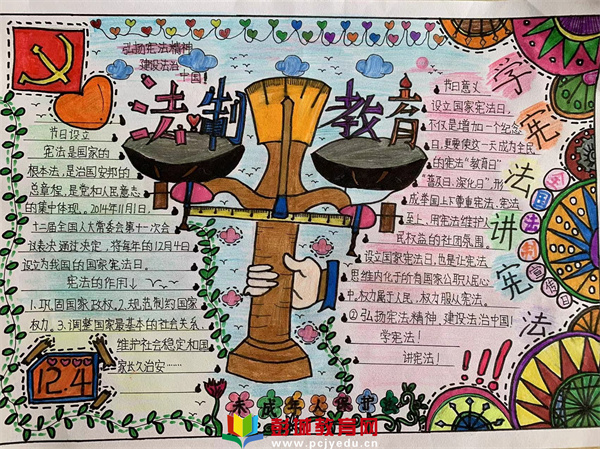 弘扬宪法精神
建设法治
中国!
法制教育
节日设立
宪法是国家的
根本法,是治国安邦的
总章程,是党和人民意志
的集中体现。2014年11月1日,
十二届全国人大常委会第十一次会
议表决通过决定,将每年的12月4日
设立为我国的国家宪法日。
宪法的作用↓
1.巩固国家政权,2.规范制约国家
权力。3.调整国家最基本的社会关系,
维护社会稳定和国
家长久治安……
12.4
节日意义
设立国家宪法日,
不仅是增加一个纪念
日,更要使这一天成为全民
的宪法“教育日”
“普及日、深化日”,形
成举国上下尊重宪法、宪法
至上、用宪法维护人
民权益的社团氛围。
设立国家宪法日,也是让宪法
思维内化于所有国家公职人民心
中,权力属于人民,权力服从宪法。
②弘扬宪法精神,建设法治中国!
学宪法!
讲宪法!
学宪法
讲宪法
国家法制宣传日
未成年人保护法
彭城教育网
www.pcjyedu.cn